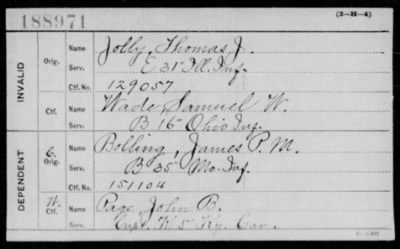 188971
(3—H—4)
INVALID
Orig. Name Jolly, Thomas J.
Serv. E 31" Ill. Inf.
Ctf. No. 129057
Ctf. Name Wade, Samuel W.
Serv. B 16" Ohio Inf.
DEPENDENT
C. Orig. Name Bolling, James P. M.
Serv. B 35" Mo. Inf.
Ctf. No. 151104
Ctf. Name Page, John B.
Serv. Capt. K 5" Ky. Cav.